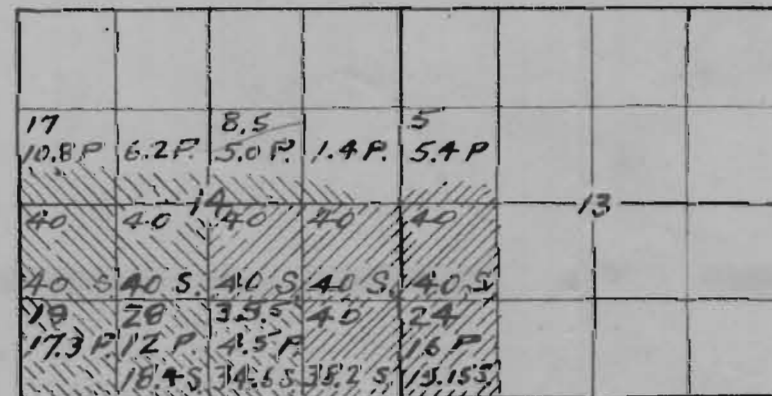 17 8.5 5
10.8 P 6.2 P. 5.0 P. 1.4 P. 5.4 P
14 13
40 40 40 40 40
40 S 40 S. 40 S 40 S. 40 S
28 40 24
17.3 P. 12 P 4.5 P 16 P
18.4 S. 34.5 S 35.2 S 15.15 S.